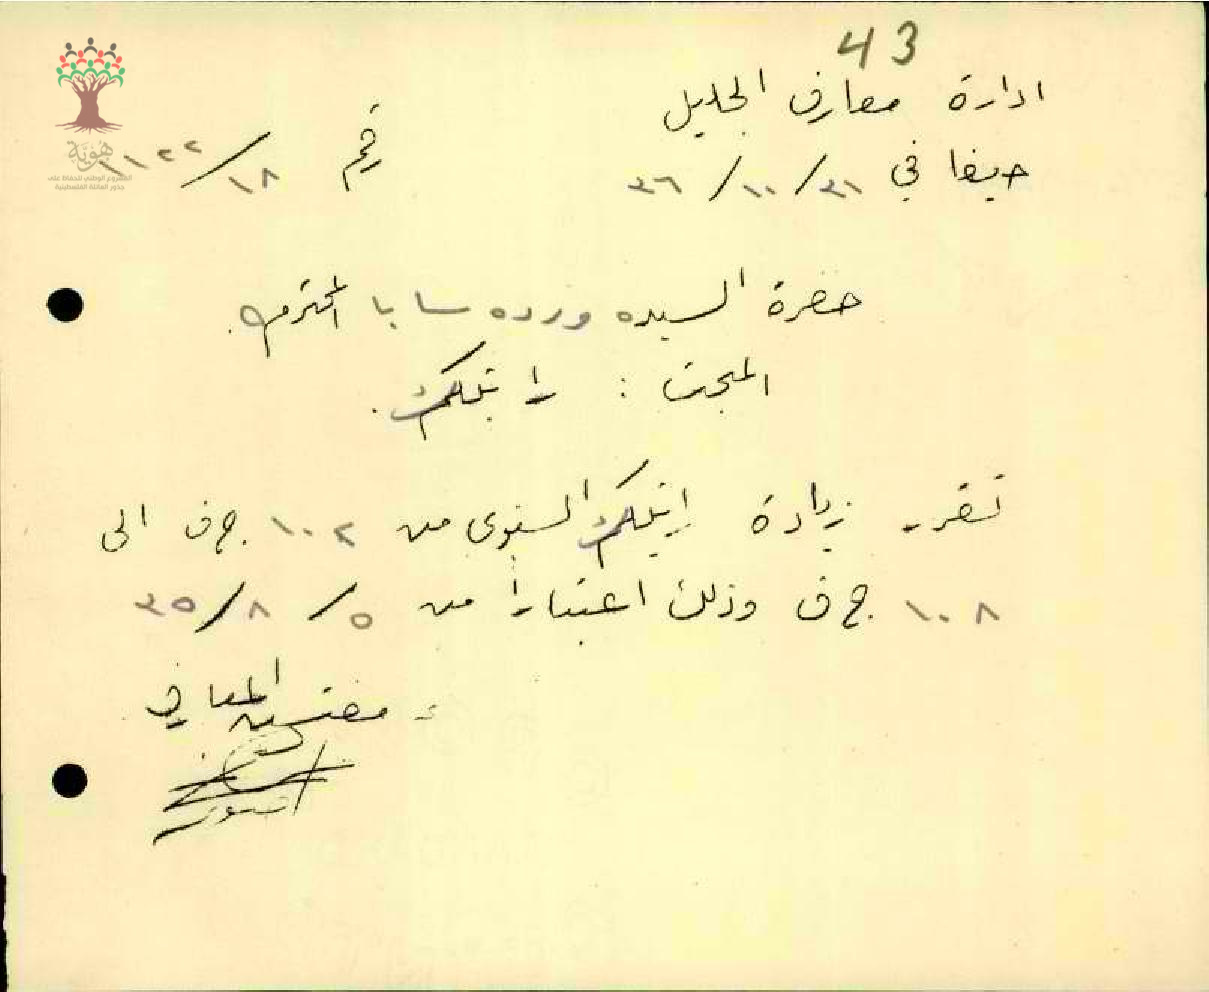 43
ادارة معارف الجليل
حيفا في ٣١/١٠/٣٦
رقم ١٨/١١٢٢
هُويّة
المشروع الوطني للحفاظ على
جذور العائلة الفلسطينية
حضرة السيده ورده سابا المحترمه.
المبحث : راتبكم.
تقرر زيادة راتبكم السنوى من ١٠٢ ج ف الى
١٠٨ ج ف وذلك اعتبارا من ٥/٨/٣٥
مفتش المعارف